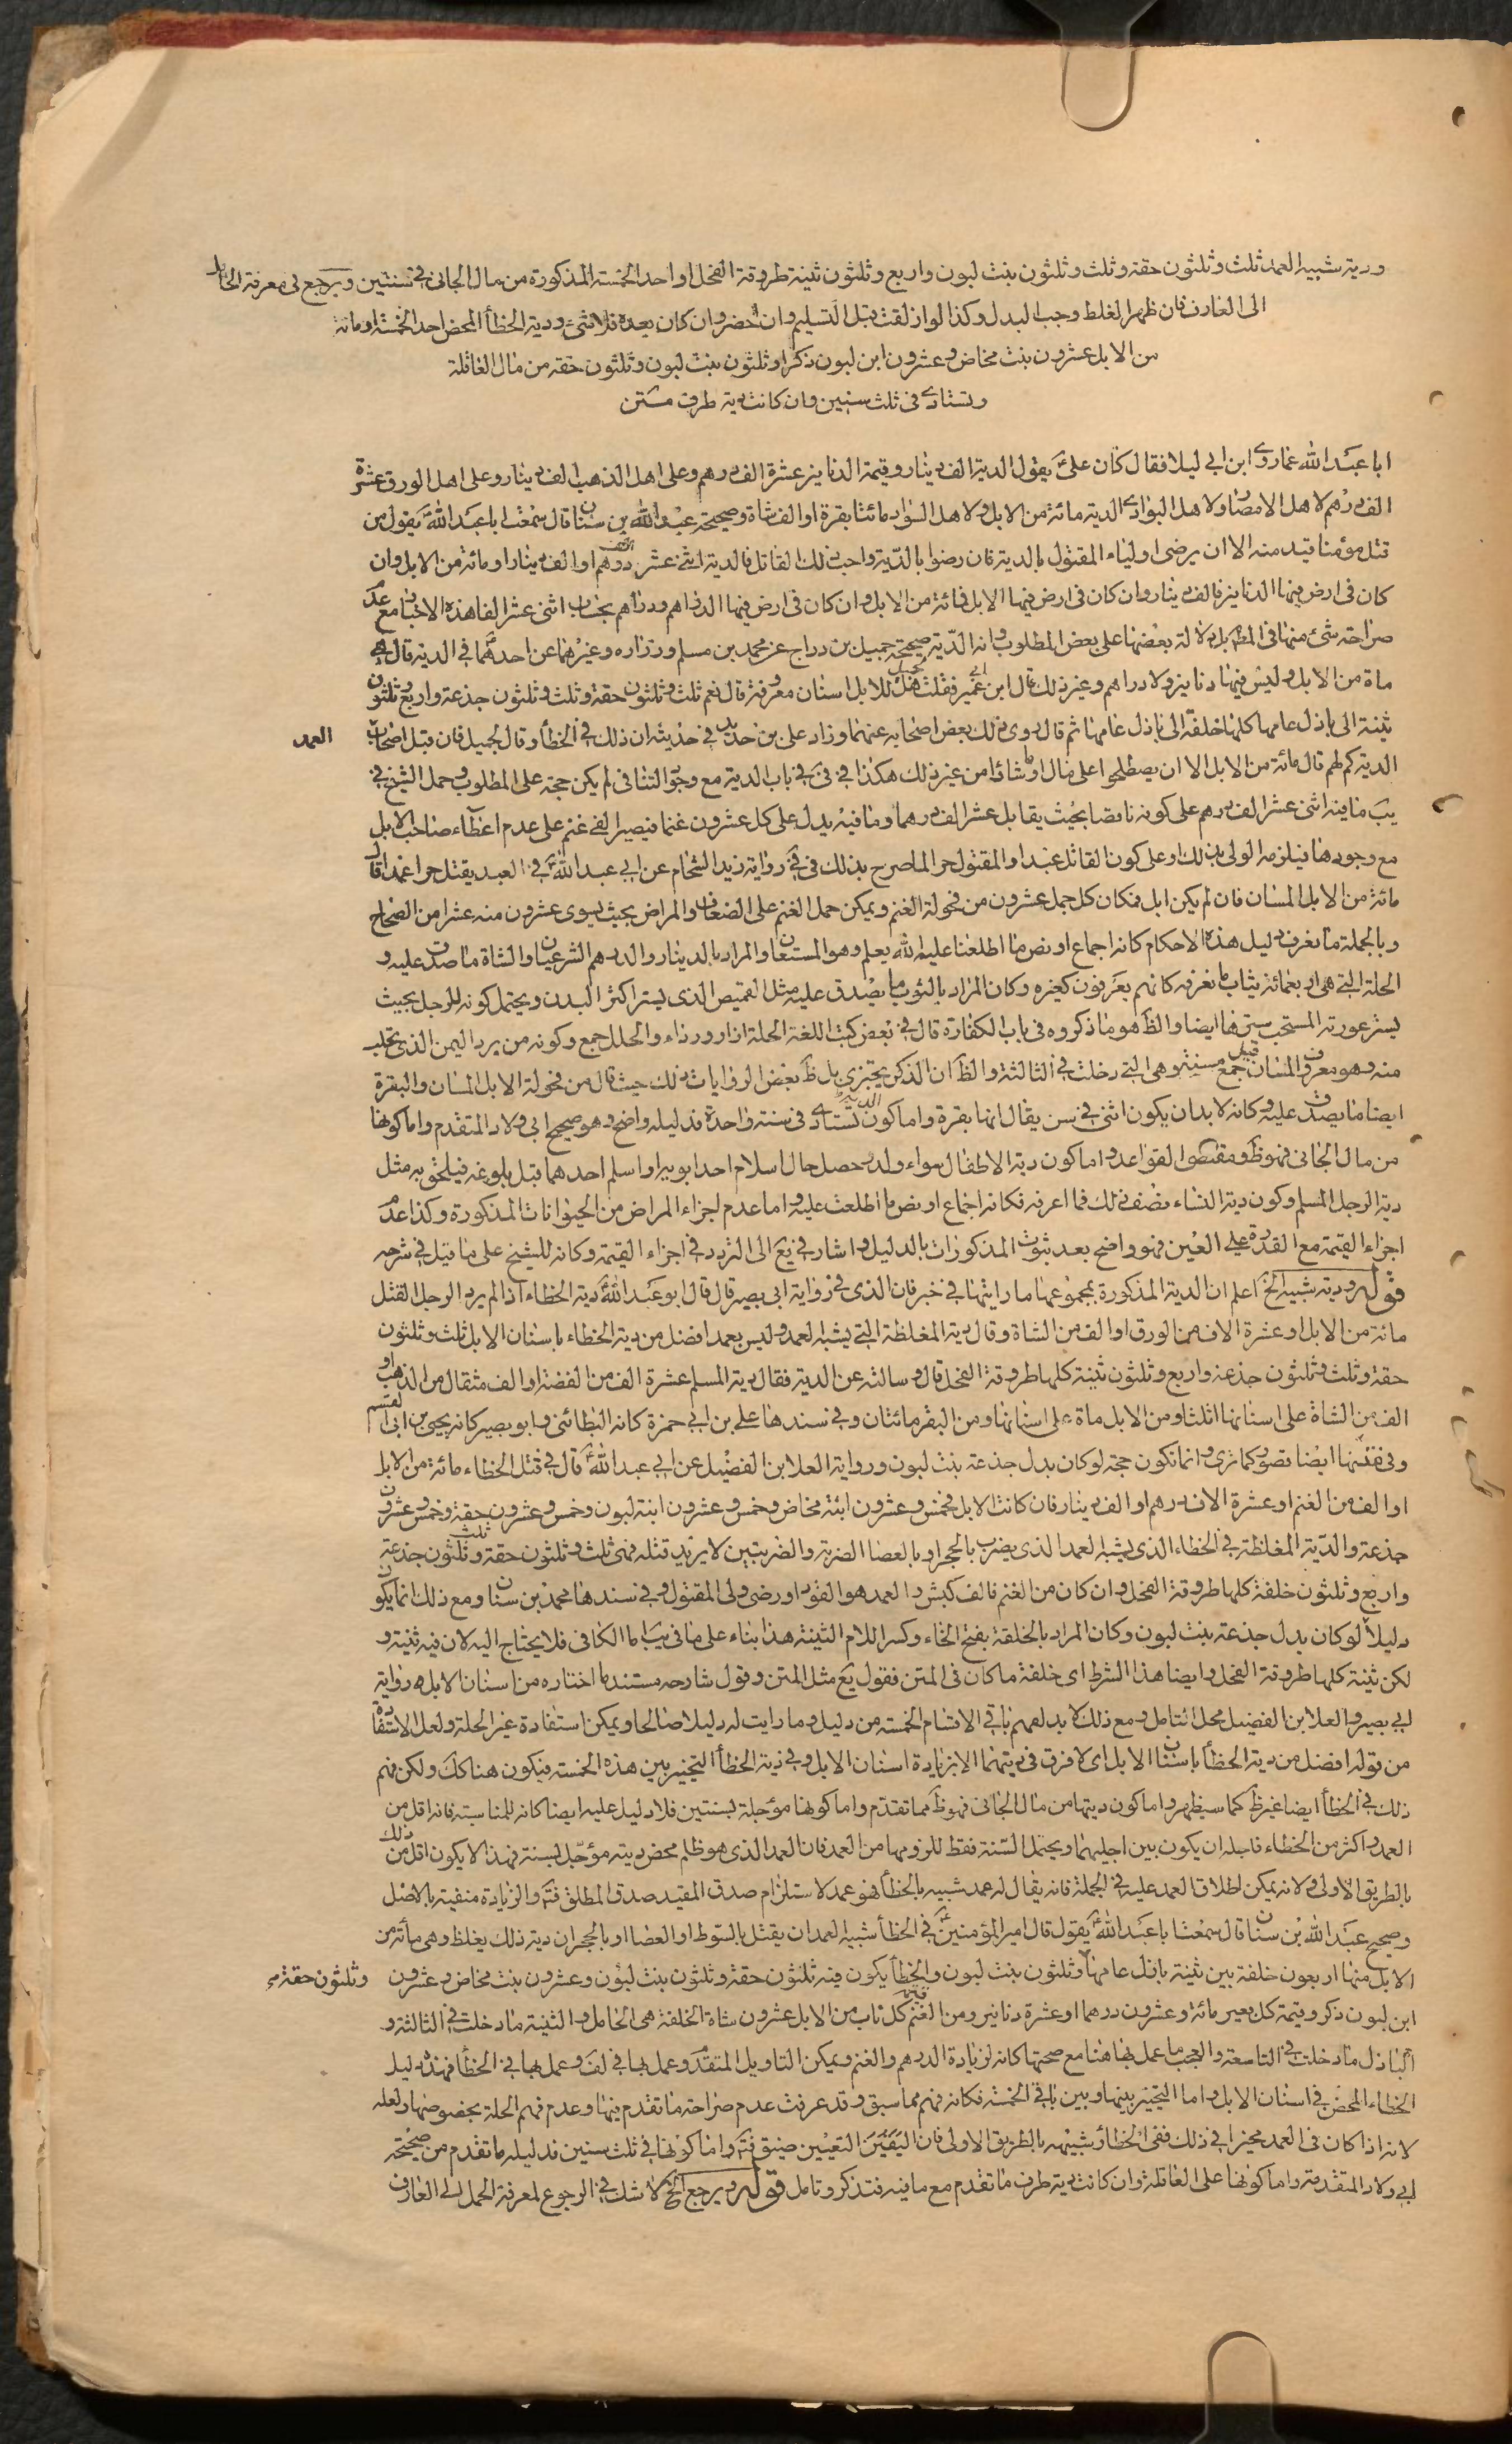 ودية شبيه العمد ثلث وثلثون حقة وثلث وثلثون بنت لبون واربع وثلثون ثنية طروقة الفحل او احد الخمسة المذكورة من مال الجانى في سنتين ويرجع في معرفة الحامل
الى العارف فان ظهر الغلط وجب البدل وكذا لو ازلقت قبل التسليم وان احضر وان كان بعده فلا شئ ودية الخطأ المحض احد الخمسة او مائة
من الابل عشرون بنت مخاض وعشرون ابن لبون ذكرا وثلثون بنت لبون وثلثون حقة من مال العاقلة
وتستادى فى ثلث سنين وان كانت دية طرف متن
ابا عبد الله عما روى ابن ابي ليلا فقال كان على يقول الدية الف دينار وقيمة الدنانير عشرة الف درهم وعلى اهل الذهب الف دينار وعلى اهل الورق عشرة
الف درهم لاهل الامصار ولاهل البوادى الدية مائة من الابل ولاهل السواد مائتا بقرة او الف شاة وصحيحة عبد الله بن سنان قال سمعت ابا عبد الله يقول من
قتل مؤمنا قيد منه الا ان يرضى اولياء المقتول بالدية فان رضوا بالدية واحب ذلك القاتل فالدية اثنى عشر الف درهم او الف دينار او مائة من الابل وان
كان فى ارض فيها الدنانير فالف دينار وان كان فى ارض فيها الابل فمائة من الابل وان كان فى ارض فيها الدراهم فدراهم بحساب اثنى عشر الفا هذه الاخبار مع عدم
صراحة شئ منها فى المطلوب بل دلالة بعضها على بعض المطلوب وانه الدية صحيحة جميل بن دراج عن محمد بن مسلم وزراره وغيرهما عن احدهما في الدية قال هى
ماة من الابل وليس فيها دنانير ولا دراهم وغير ذلك قال ابن ابي عمير فقلت لجميل هل للابل اسنان معروفة قال نعم ثلث وثلثون حقة وثلث وثلثون جذعة واربع وثلثون
ثنية الى باذل عامها كلها خلفة الى باذل عامها ثم قال روى ذلك بعض اصحابه عنهما وزاد على بن حديد في حديثه ان ذلك في الخطأ وقال لجميل فان قبل اصحاب العمد
الدية كم لهم قال مائة من الابل الا ان يصطلحوا على مال او ما شاؤا من غير ذلك هكذا في في في باب الدية مع وجود التنافى لم يكن حجة على المطلوب وحمل الشيخ في
يب ما فيه اثنى عشر الف درهم على كونه ناقصا بحيث يقابل عشر الف درهما وما فيه يدل على كل عشرون غنما فيصير الفي غنم على عدم اعطاء صاحب الابل
مع وجودها فيلزمه الولى بذلك او على كون القاتل عبدا والمقتول حرا لما صرح بذلك فى في رواية زيد الشحام عن ابي عبد الله في العبد يقتل حرا عمدا قال
مائة من الابل المسان فان لم يكن ابل فمكان كل جمل عشرون من فحولة الغنم ويمكن حمل الغنم على الضعاف والمراض بحيث يسوى عشرون منه عشرا من الصحاح
وبالجملة ما نعرف دليل هذه الاحكام كانه اجماع او نص ما اطلعنا عليه الله يعلم وهو المستعان والمراد بالدينار والدرهم الشرعيان والشاة ما صدق عليه و
الحلة التى هى اربعمائة ثياب ما نعرفه كانهم يعرفون كغيره وكان المراد بالثوب ما يصدق عليه مثل القميص الذى يستر اكثر البدن ويحتمل كونه للرجل بحيث
يستر عورته المستحب سترها ايضا والظ هو ما ذكروه فى باب الكفارة قال في بعض كتب اللغة الحلة ازار ورداء والحلل جمع وكونه من برد اليمن الذى يجلب
منه وهو معروف المسان قيل جمع مسنة وهى التى دخلت فى الثالثة والظ ان الذكر يجزى بل ظ بعض الروايات ذلك حيث قال من فحولة الابل المسان والبقرة
ايضا ما يصدق عليه وكانه لا بد ان يكون انثى في سن يقال انها بقرة واما كون الدية تستادى فى سنة واحدة فدليله واضح وهو صحيح ابى ولاد المتقدم واما كونها
من مال الجانى فهو ظ ومقتضى القواعد واما كون دية الاطفال سواء ولد وحصل حال اسلام احد ابويه او اسلم احدهما قبل بلوغه فيلحق به مثل
دية الرجل المسلم وكون دية النساء نصف ذلك فما اعرفه فكانه اجماع او نص ما اطلعت عليه واما عدم اجزاء المراض من الحيوانات المذكورة وكذا عدم
اجزاء القيمة مع القدرة على العين فهو واضح بعد ثبوت المذكورات بالدليل واشار في يع الى التردد في اجزاء القيمة وكانه للشيخ على ما قيل في شرحه
قوله ودية شبيه الخ اعلم ان الدية المذكورة بمجموعها ما رايتها في خبر فان الذى في رواية ابى بصير قال قال ابو عبد الله دية الخطاء اذا لم يرد الرجل القتل
مائة من الابل او عشرة الاف من الورق او الف من الشاة وقال دية المغلظة التى يشبه العمد وليس بعمد افضل من دية الخطاء باسنان الابل ثلث وثلثون
حقة وثلث وثلثون جذعة واربع وثلثون ثنية كلها طروقة الفحل قال وسالته عن الدية فقال دية المسلم عشرة الف من الفضة او الف مثقال من الذهب او
الف من الشاة على اسنانها اثلاثا ومن الابل ماة على اسنانها ومن البقر مائتان وفي سندها على بن ابي حمزة كانه البطائنى وابو بصير كانه يحيى بن ابى القسم
وفى متنها ايضا قصور كما ترى وانما تكون حجة لو كان بدل جذعة بنت لبون ورواية العلا بن الفضيل عن ابي عبد الله قال في قتل الخطاء مائة من الابل
او الف من الغنم او عشرة الاف درهم او الف دينار فان كانت الابل فخمس وعشرون ابنة مخاض وخمس وعشرون ابنة لبون وخمس وعشرون حقة وخمس وعشرون
جذعة والدية المغلظة في الخطاء الذى يشبه العمد الذى يضرب بالحجر او بالعصا الضربة والضربتين لا يريد قتله فهى ثلث وثلثون حقة وثلث وثلثون جذعة
واربع وثلثون خلفة كلها طروقة الفحل وان كان من الغنم فالف كبش والعمد هو القود او رضى ولى المقتول وفي سندها محمد بن سنان ومع ذلك انما يكون
دليلا لو كان بدل جذعة بنت لبون وكان المراد بالخلفة بفتح الخاء وكسر اللام الثنية هذا بناء على ما في يب اما الكافى فلا يحتاج اليه لان فيه ثنية و
لكن ثنية كلها طروقة الفحل وايضا هذا الشرط اى خلفة ما كان فى المتن فقول يع مثل المتن وقول شارحه مستند ما اختاره من اسنان الابل رواية
ابى بصير والعلا بن الفضيل محل التامل ومع ذلك لا بد لهم باقى الاقسام الخمسة من دليل وما رايت له دليلا صالحا ويمكن استفادة غير الحلة ولعل الاستفادة
من قوله افضل من دية الخطأ باسنان الابل اى لا فرق فى ديتهما الا بزيادة اسنان الابل وفي دية الخطأ التخيير بين هذه الخمسة فيكون هنا كك ولكن فهم
ذلك في الخطأ ايضا غير ظ كما سيظهر واما كون ديتها من مال الجانى فهو ظ مما تقدم واما كونها مؤجلة بسنتين فلا دليل عليه ايضا كانه للمناسبة فانه اقل من
العمد واكثر من الخطاء فاجله ان يكون بين اجليهما ويحتمل السنة فقط للزومها من العمد فان العمد الذى هو ظلم محض ديته مؤجل بسنة فهذا لا يكون اقل من ذلك
بالطريق الاولى ولانه يمكن اطلاق العمد عليه في الجملة فانه يقال له عمد شبيه بالخطأ فهو عمد لاستلزام صدق المقيد صدق المطلق فت والزيادة منفية بالاصل
وصحيح عبد الله بن سنان قال سمعت ابا عبد الله يقول قال امير المؤمنين في الخطأ شبيه العمد ان يقتل بالسوط او العصا او بالحجر ان دية ذلك يغلظ وهى مأئة من
الابل منها اربعون خلفة بين ثنية باذل عامها وثلثون بنت لبون والخطأ يكون فيه ثلثون حقة وثلثون بنت لبون وعشرون بنت مخاض وعشرون وثلثون حقة
ابن لبون ذكر وقيمة كل بعير مائة وعشرون درهما او عشرة دنانير ومن الغنم قيمة كل ناب من الابل عشرون شاة الخلفة هى الحامل والثنية ما دخلت فى الثالثة و
الباذل ما دخلت في التاسعة والعجب ما عمل بها هنا مع صحتها كانه لزيادة الدرهم والغنم ويمكن التاويل المتقدم وعمل بها في لف وعمل بها في الخطأ فهذه دليل
الخطاء المحض في اسنان الابل واما التخيير بينها وبين باقى الخمسة فكانه فهم مما سبق وقد عرفت عدم صراحة ما تقدم فيها وعدم فهم الحلة بخصوصها ولعله
لانه اذا كان فى العمد مخيرا في ذلك ففى الخطأ وشبيهه بالطريق الاولى فان التعيين ضيق فت واما كونها في ثلث سنين فدليله ما تقدم من صحيحة
ابى ولاد المتقدمة واما كونها على العاقلة وان كانت دية طرف ما تقدم مع ما فيه فتذكر وتامل قوله ويرجع الخ لا شك في الرجوع لمعرفة الحمل الى العارف